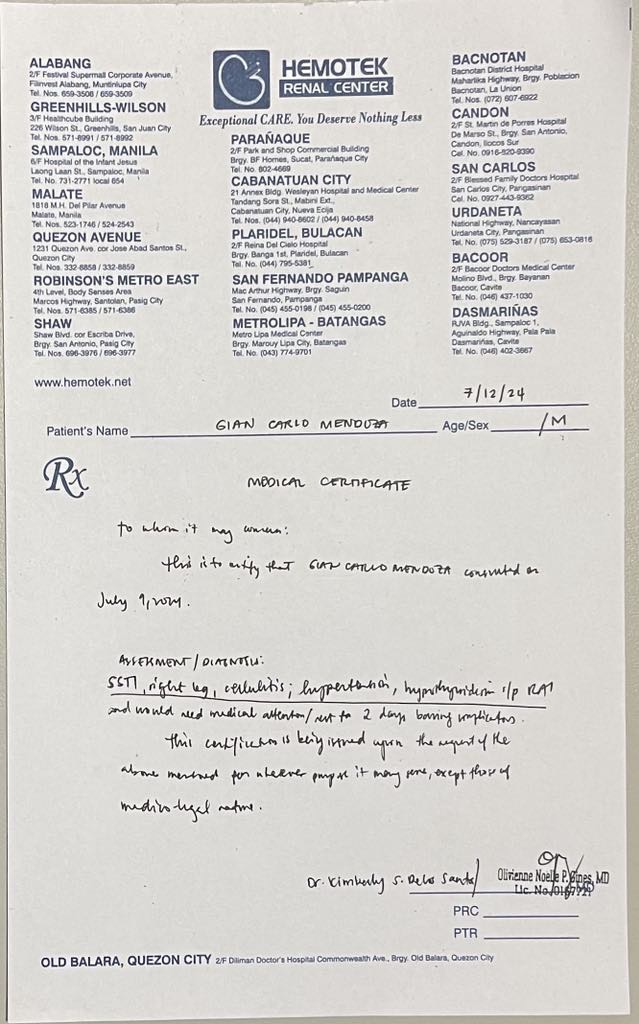 ALABANG
2/F Festival Supermall Corporate Avenue,
Filinvest Alabang, Muntinlupa City
Tel. Nos. 659-3508 / 659-3509
GREENHILLS-WILSON
3/F Healthcube Building
226 Wilson St., Greenhills, San Juan City
Tel. Nos. 571-8991 / 571-8992
SAMPALOC, MANILA
6/F Hospital of the Infant Jesus
Laong Laan St., Sampaloc, Manila
Tel. No. 731-2771 local 654
MALATE
1818 M.H. Del Pilar Avenue
Malate, Manila
Tel. Nos. 523-1746 / 524-2543
QUEZON AVENUE
1231 Quezon Ave. cor Jose Abad Santos St.,
Quezon City
Tel. Nos. 332-8858 / 332-8859
ROBINSON'S METRO EAST
4th Level, Body Senses Area
Marcos Highway, Santolan, Pasig City
Tel. Nos. 571-6385 / 571-6386
SHAW
Shaw Blvd. cor Escriba Drive,
Brgy. San Antonio, Pasig City
Tel. Nos. 696-3976 / 696-3977
www.hemotek.net
HEMOTEK
RENAL CENTER
Exceptional CARE. You Deserve Nothing Less
PARAÑAQUE
2/F Park and Shop Commercial Building
Brgy. BF Homes, Sucat, Parañaque City
Tel. No. 802-4669
CABANATUAN CITY
21 Annex Bldg. Wesleyan Hospital and Medical Center
Tandang Sora St., Mabini Ext.,
Cabanatuan City, Nueva Ecija
Tel. Nos. (044) 940-6602 / (044) 940-8458
PLARIDEL, BULACAN
2/F Reina Del Cielo Hospital
Brgy. Banga 1st, Plaridel, Bulacan
Tel. No. (044) 795-5381
SAN FERNANDO PAMPANGA
Mac Arthur Highway, Brgy. Saguin
San Fernando, Pampanga
Tel. No. (045) 455-0198 / (045) 455-0200
METROLIPA - BATANGAS
Metro Lipa Medical Center
Brgy. Marouy Lipa City, Batangas
Tel. No. (043) 774-9701
BACNOTAN
Bacnotan District Hospital
Maharlika Highway, Brgy. Poblacion
Bacnotan, La Union
Tel. Nos. (072) 607-6922
CANDON
2/F St. Martin de Porres Hospital
De Marso St., Brgy. San Antonio,
Candon, Ilocos Sur
Cel. No. 0916-820-9390
SAN CARLOS
2/F Blessed Family Doctors Hospital
San Carlos City, Pangasinan
Cel. No. 0927-443-9362
URDANETA
National Highway, Nancayasan
Urdaneta City, Pangasinan
Tel. No. (075) 529-3187 / (075) 653-0816
BACOOR
2/F Bacoor Doctors Medical Center
Molino Blvd., Brgy. Bayanan
Bacoor, Cavite
Tel. No. (046) 437-1030
DASMARIÑAS
RJVA Bldg., Sampaloc 1,
Aguinaldo Highway, Pala Pala
Dasmariñas, Cavite
Tel. No. (046) 402-3667
Date 7/12/24
Patient's Name GIAN CARLO MENDOZA Age/Sex /M
Rx
MEDICAL CERTIFICATE
To whom it may concern:
This is to certify that GIAN CARLO MENDOZA consulted on
July 9, 2024.
ASSESSMENT/DIAGNOSIS:
SSTI, right leg, cellulitis; hypertension, hypothyroidism s/p RAI
and would need medical attention/rest for 2 days barring complications.
This certification is being issued upon the request of the
above mentioned for whatever purpose it may serve, except those of
medico-legal nature.
Dr. Kimberly S. Delos Santos/ Olivienne Noelle P. Gines, MD
Lic. No.
PRC
PTR
OLD BALARA, QUEZON CITY 2/F Diliman Doctor's Hospital Commonwealth Ave., Brgy. Old Balara, Quezon City